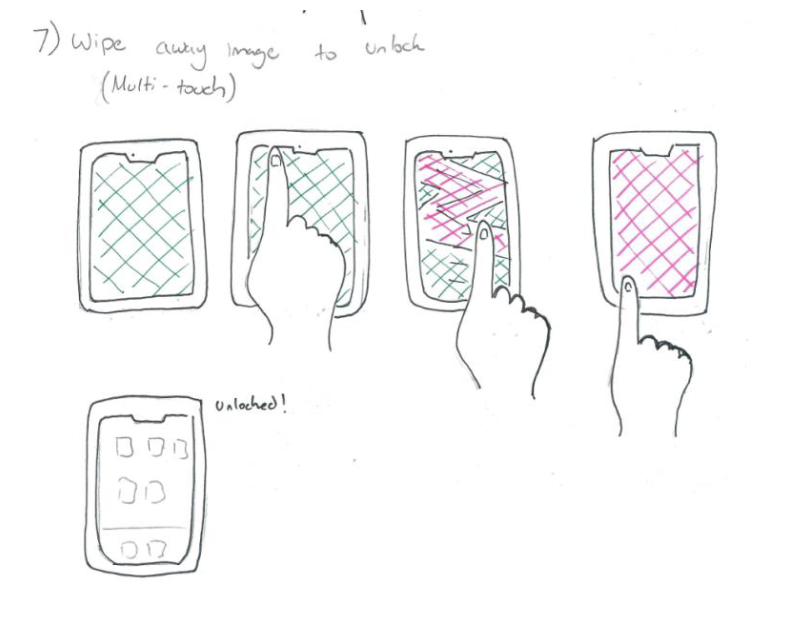 7) Wipe away image to unlock
(Multi-touch)
Unlocked!